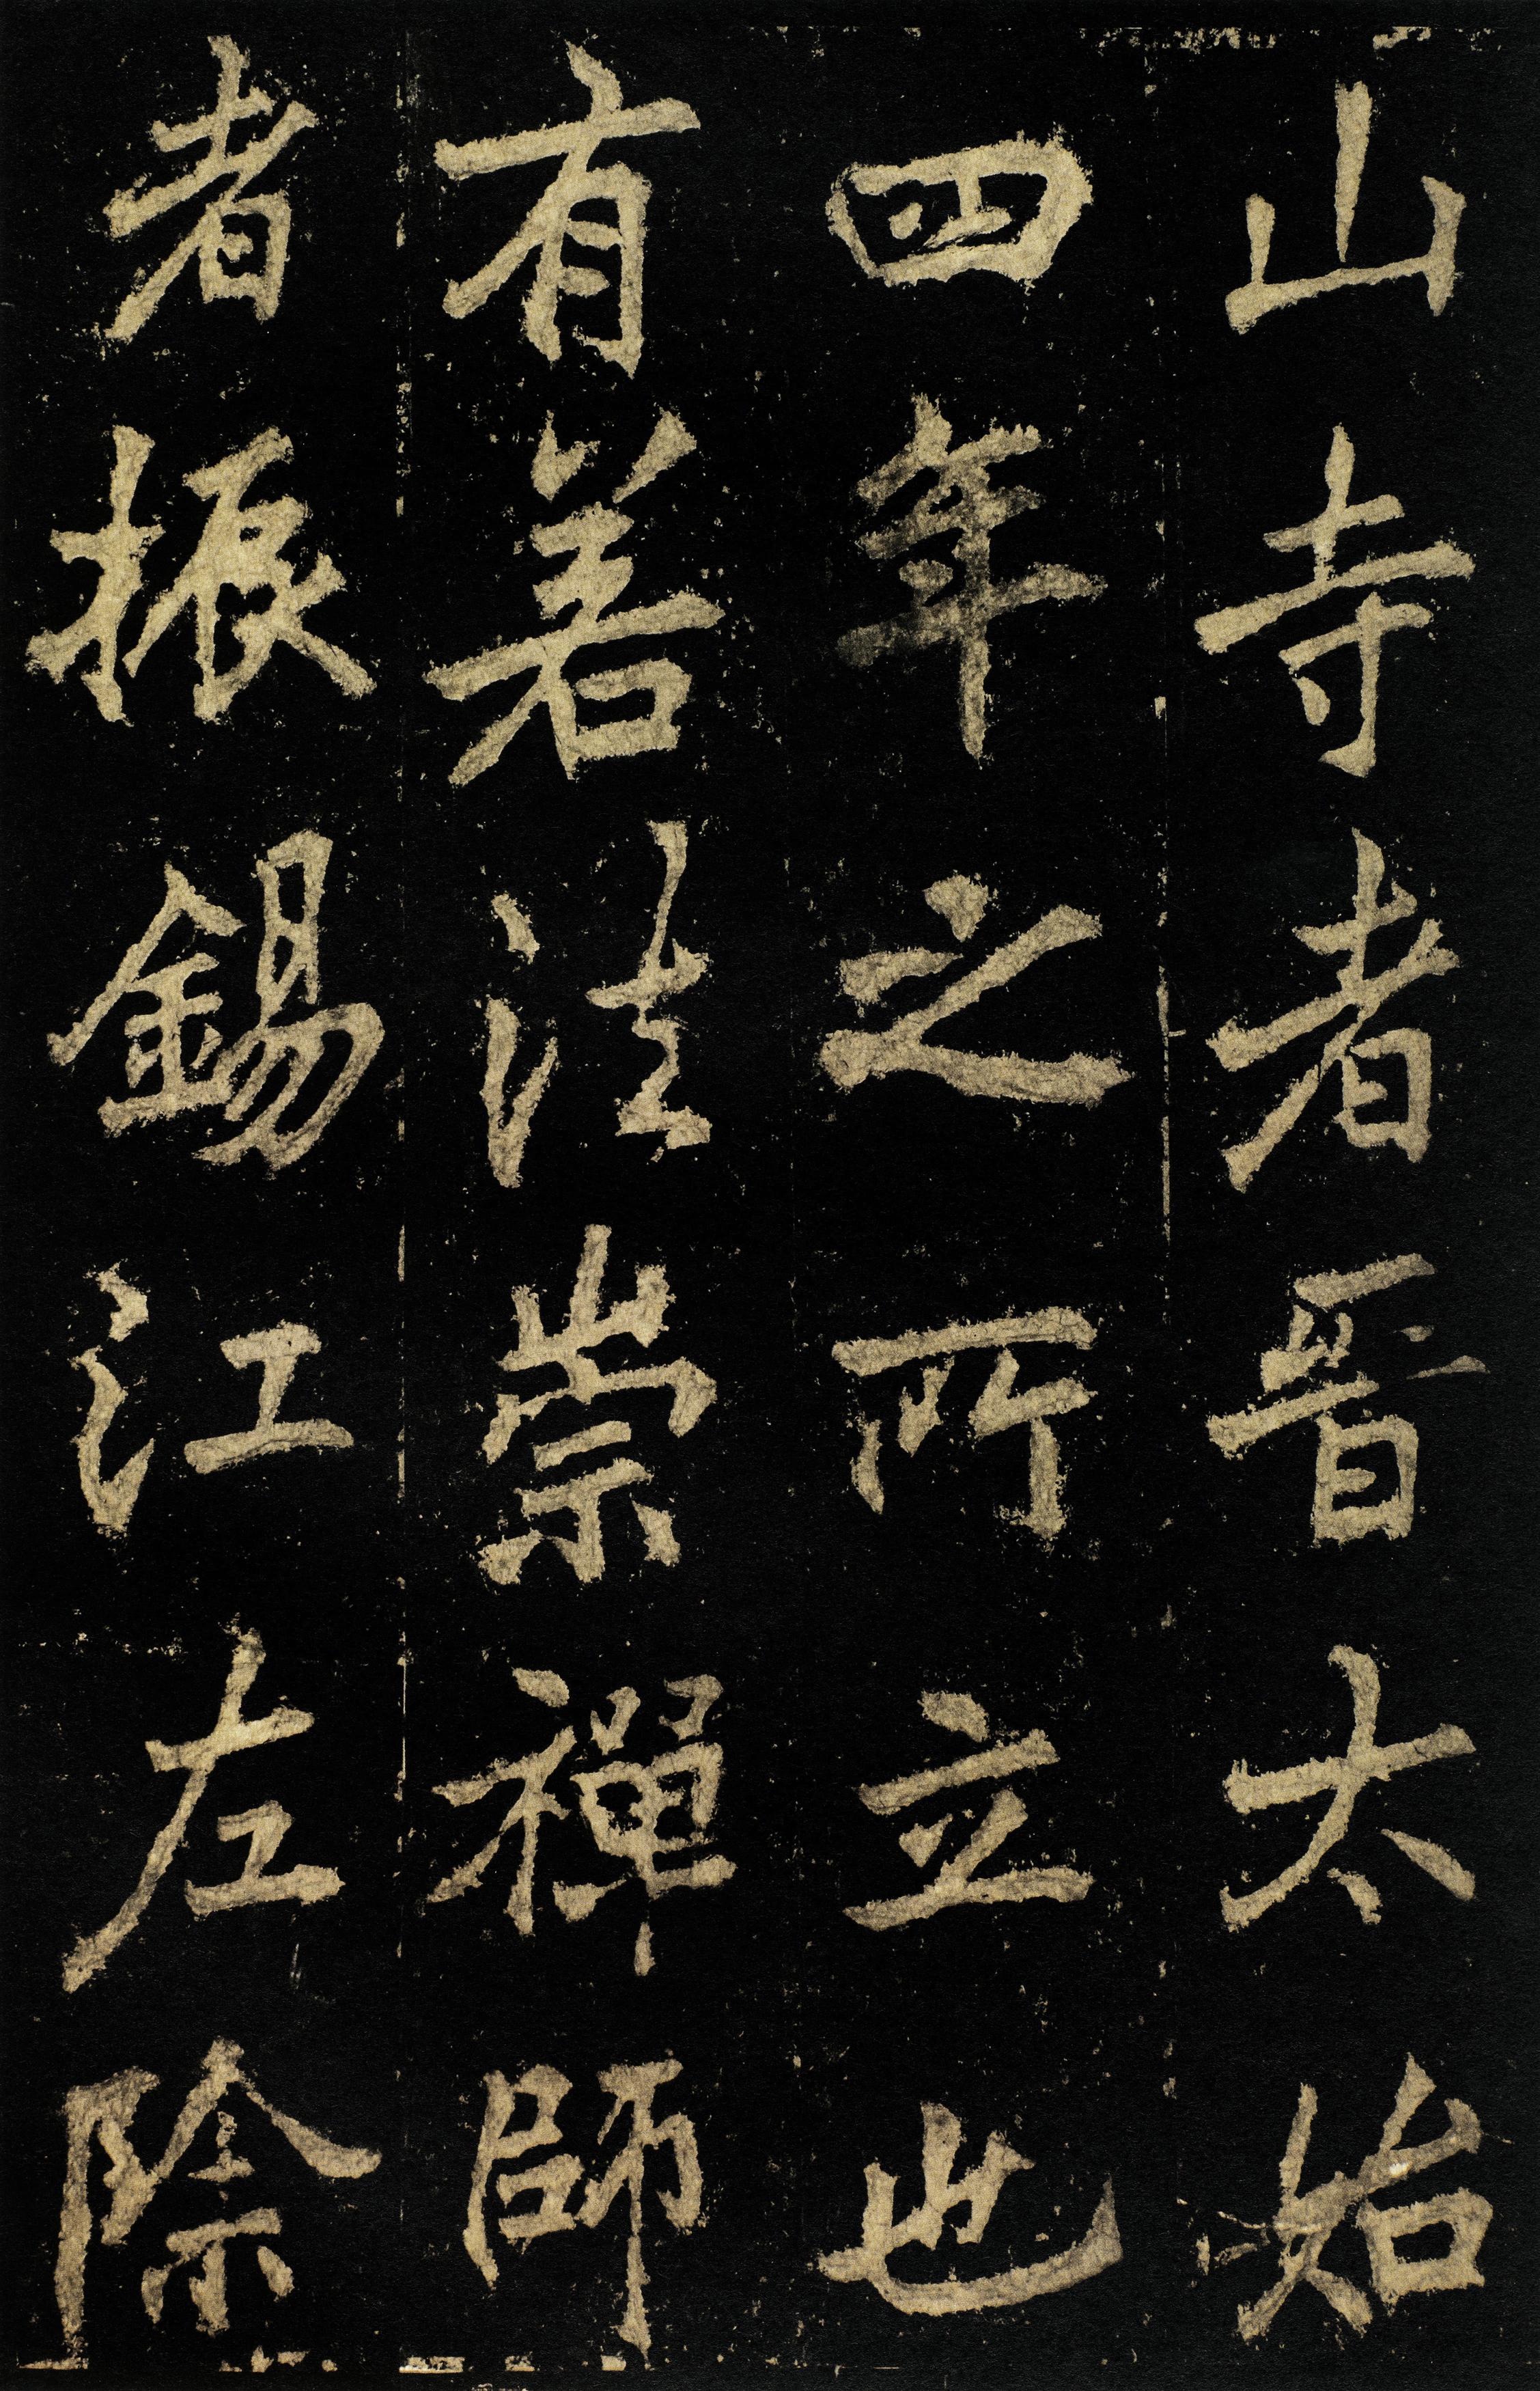 山寺者晉太始
四年之所立也
有若法崇禪師
者振錫江左除